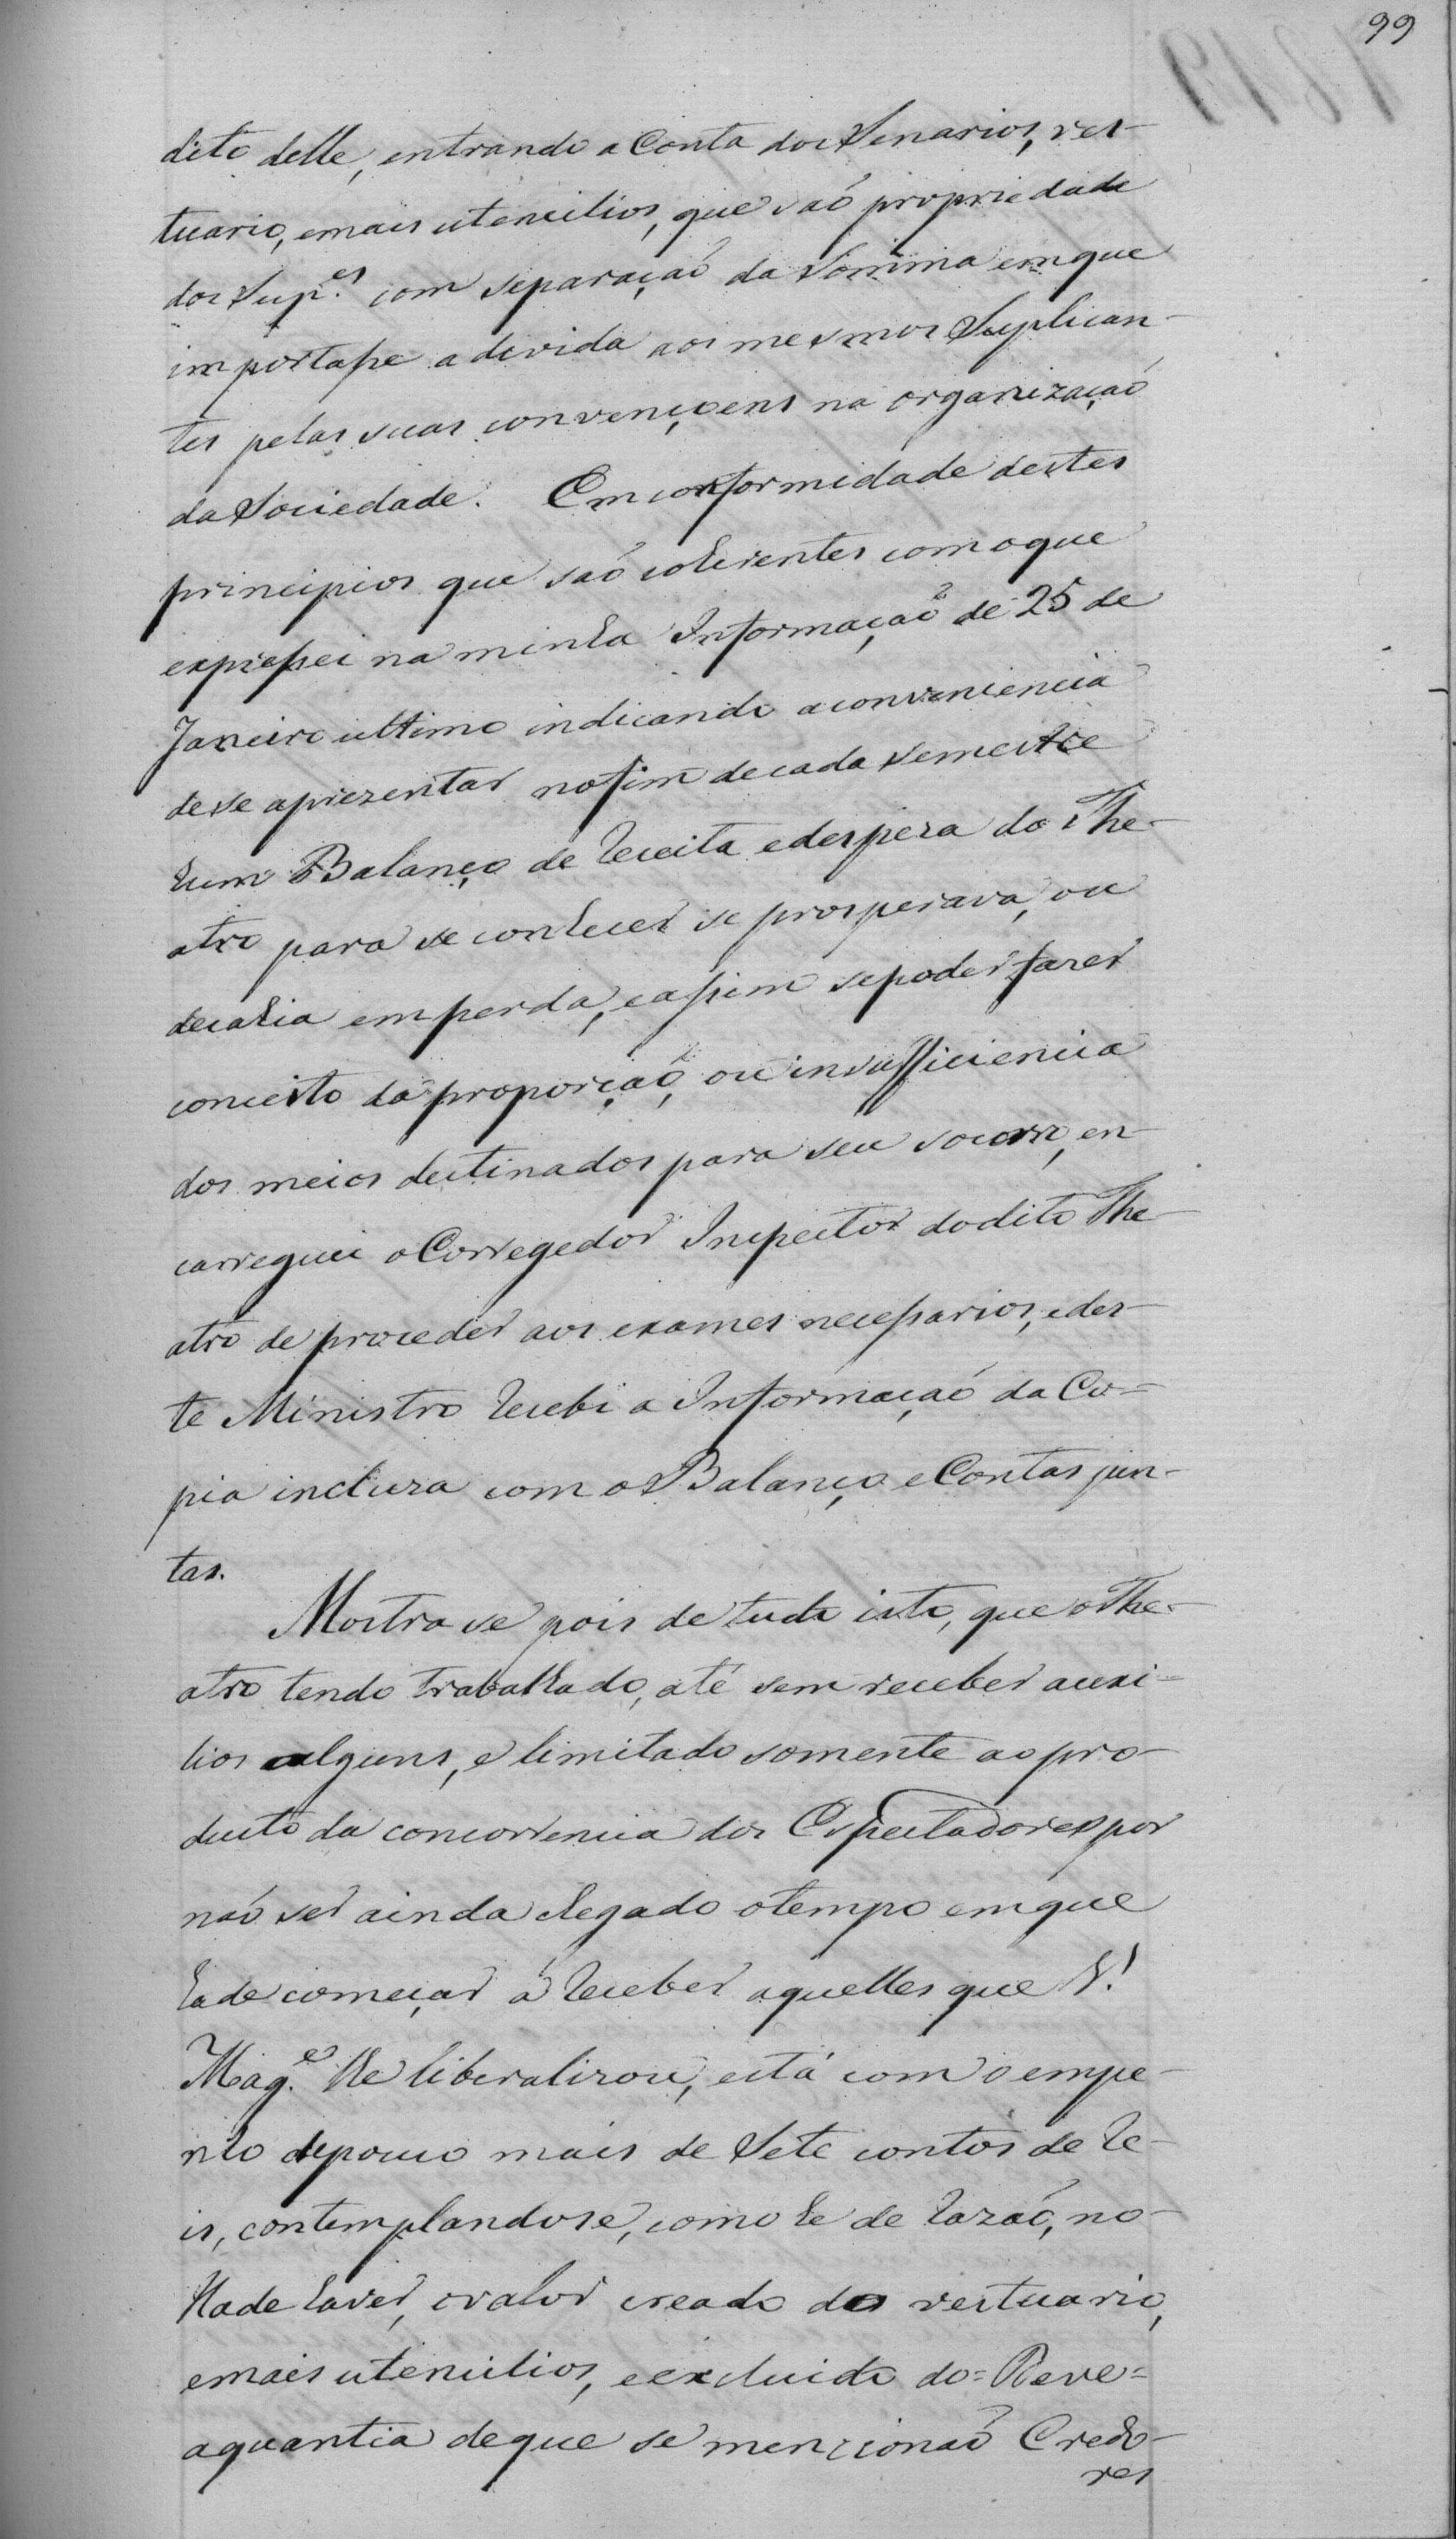 99
dito delle, entrando a Conta dos Senarios, ves-
tuario, e mais utencilios, que saõ propriedade
dos Sup.es com separaçaõ da Somma em que
importasse a divida aos mesmos Suplican-
tes pelas suas convençoens na organizaçaõ
da Sociedade. Em conformidade destes
principios que saõ coherentes com o que
expressei na minha Informaçaõ de 25 de
Janeiro ultimo indicando a conveniencia
de se aprezentar no fim de cada semestre
hum Balanço de Receita e despeza do The-
atro para se conhecer se prosperava, ou
decahia em perda, e assim se poder fazer
conceito da proporçaõ, ou insufficiencia
dos meios destinados para seu socorro, en-
carreguei o Corregedor Inspector do dito The-
atro de proceder aos exames necessarios, e des-
te Ministro recebi a Informaçaõ da Co-
pia incluza com o Balanço e Contas jun-
tas.
Mostra se pois de tudo isto, que o The-
atro tendo trabalhado, até sem receber auxi-
lios alguns, e limitado somente ao pro-
ducto da concorrencia dos Espectadores por
naõ ser ainda chegado o tempo em que
ha de começar á receber aquelles que S.
Mag.e lhe liberalizou, está com o empe-
nho de pouco mais de Sete contos de re-
is, contemplandose, como he de razaõ, no
Hade haver, o valor creado do vestuario,
e mais utencilios, e excluido do = Deve =
a quantia de que se mencionaõ Credo-
res